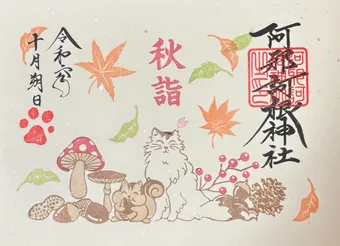 阿邪訶根神社
秋詣
令和六年
十月朔日